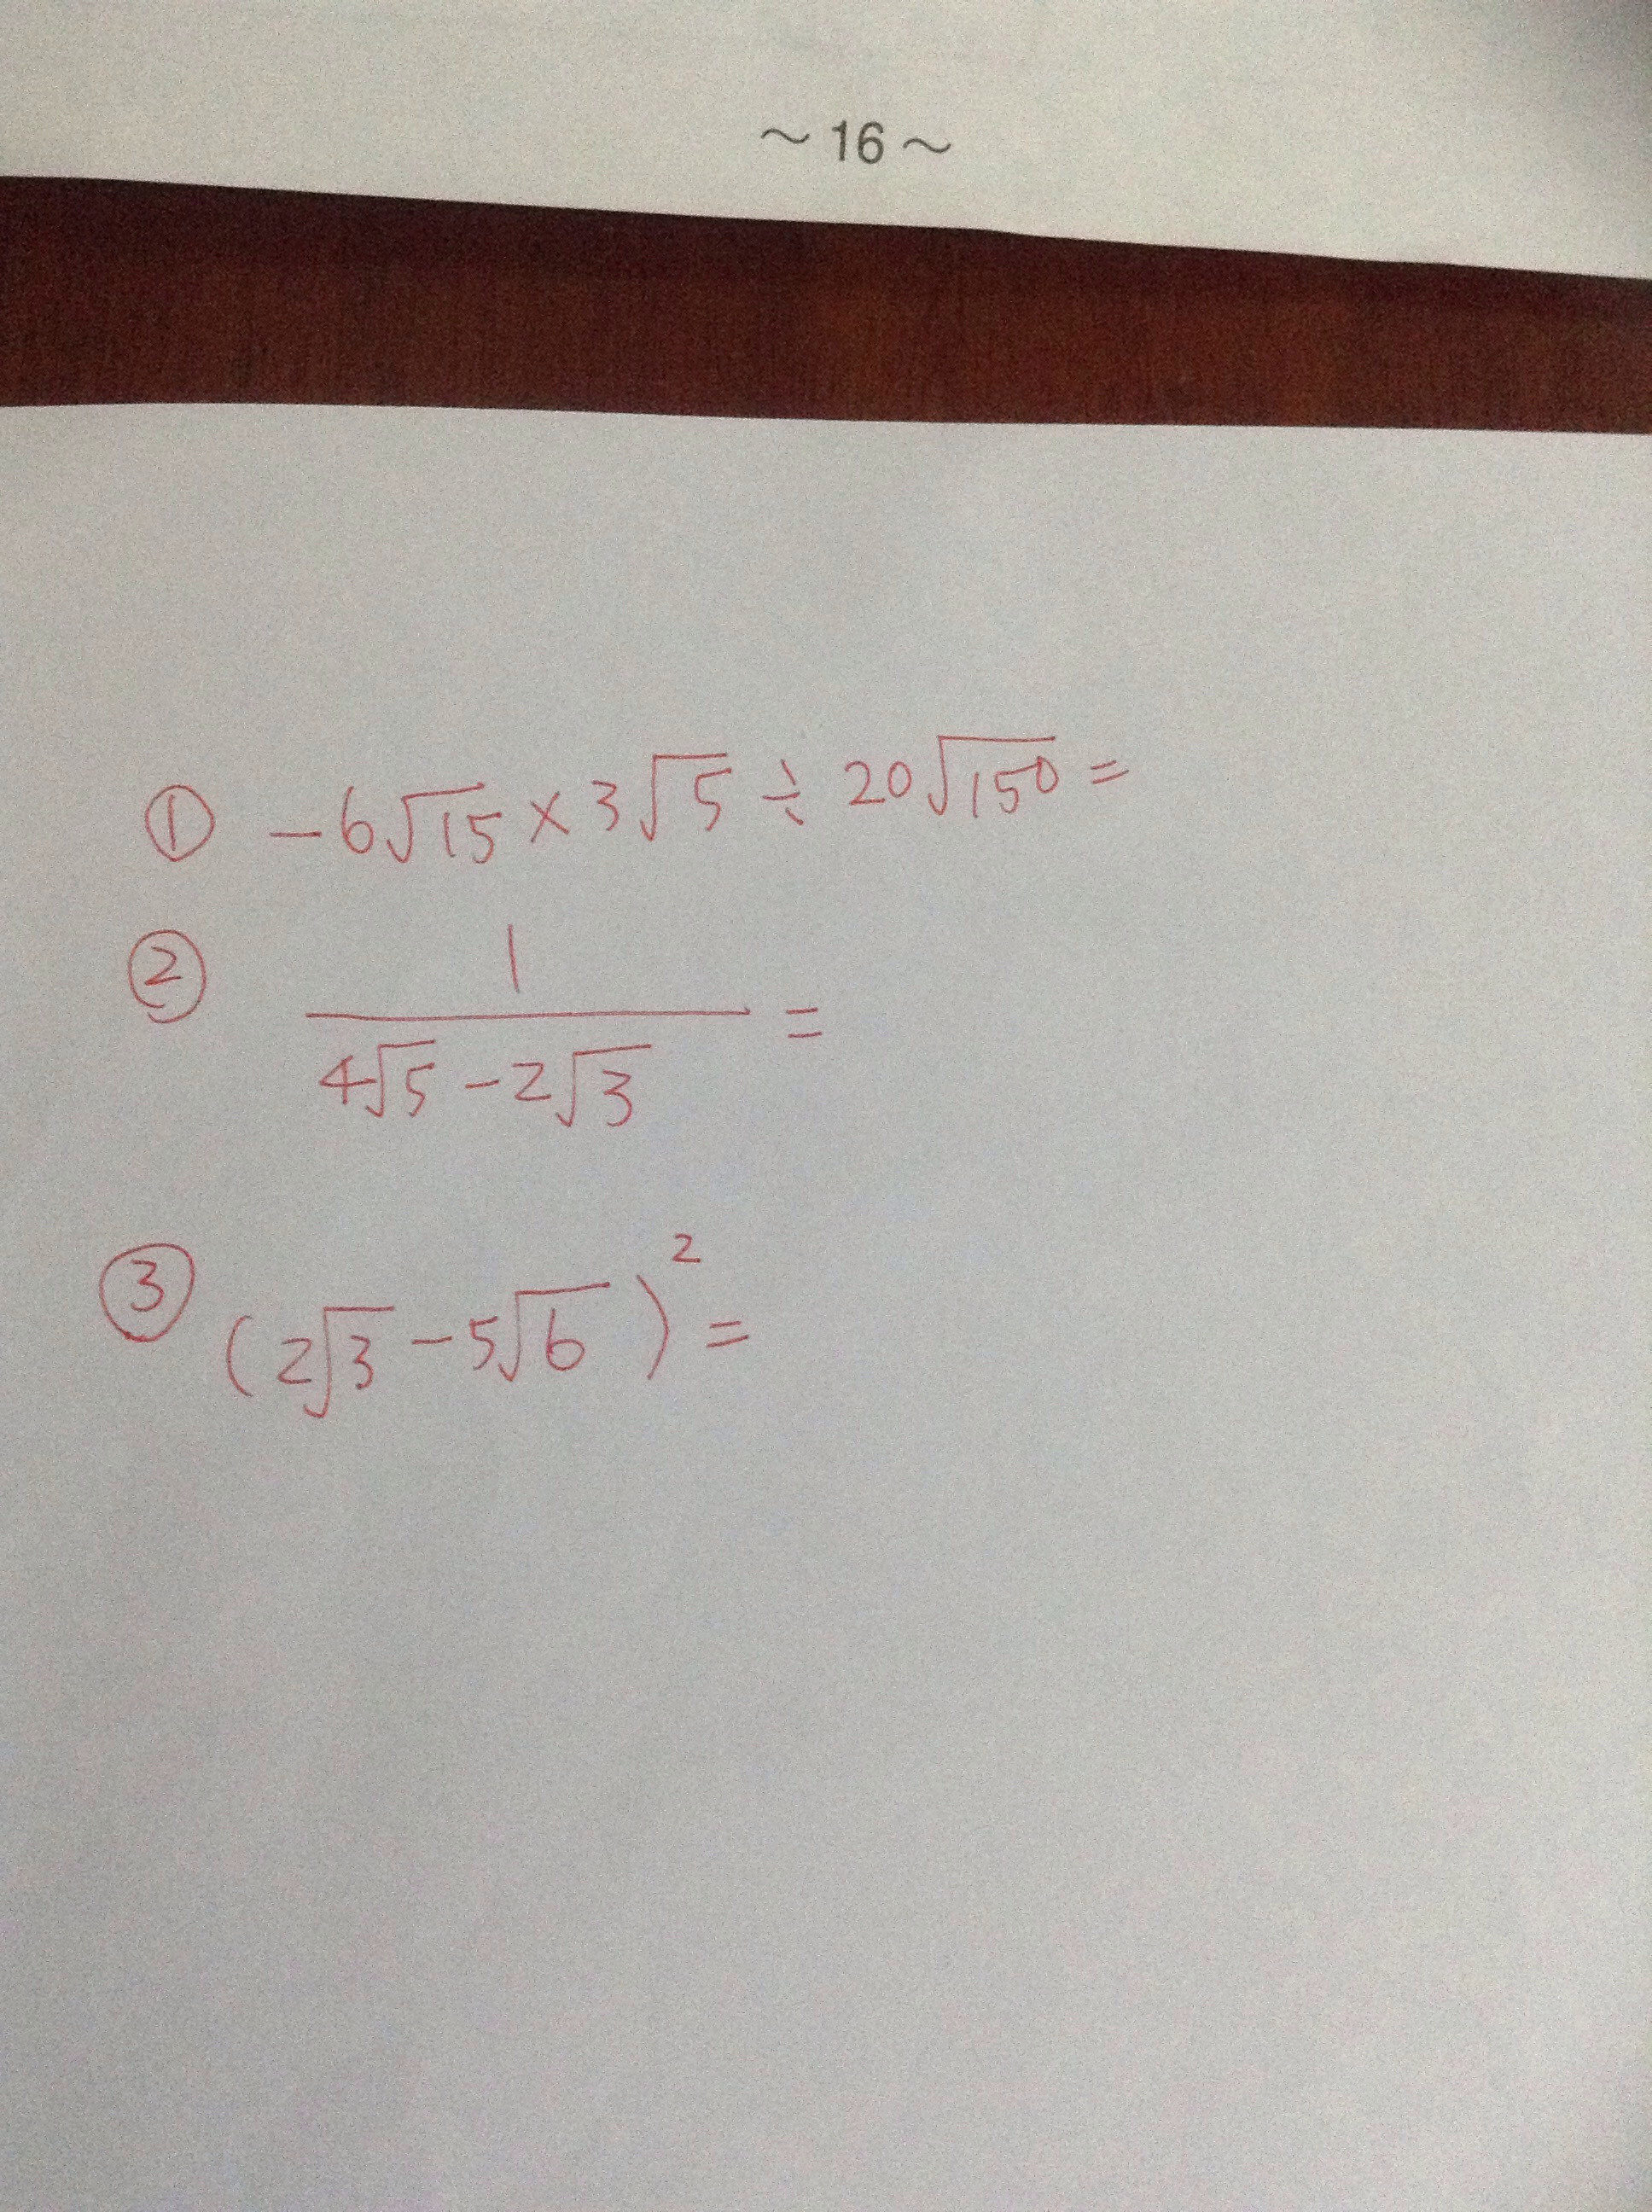 ～ 16 ～
① -6√15 × 3√5 ÷ 20√150 =
② 1/(4√5 - 2√3) =
③ (2√3 - 5√6)² =